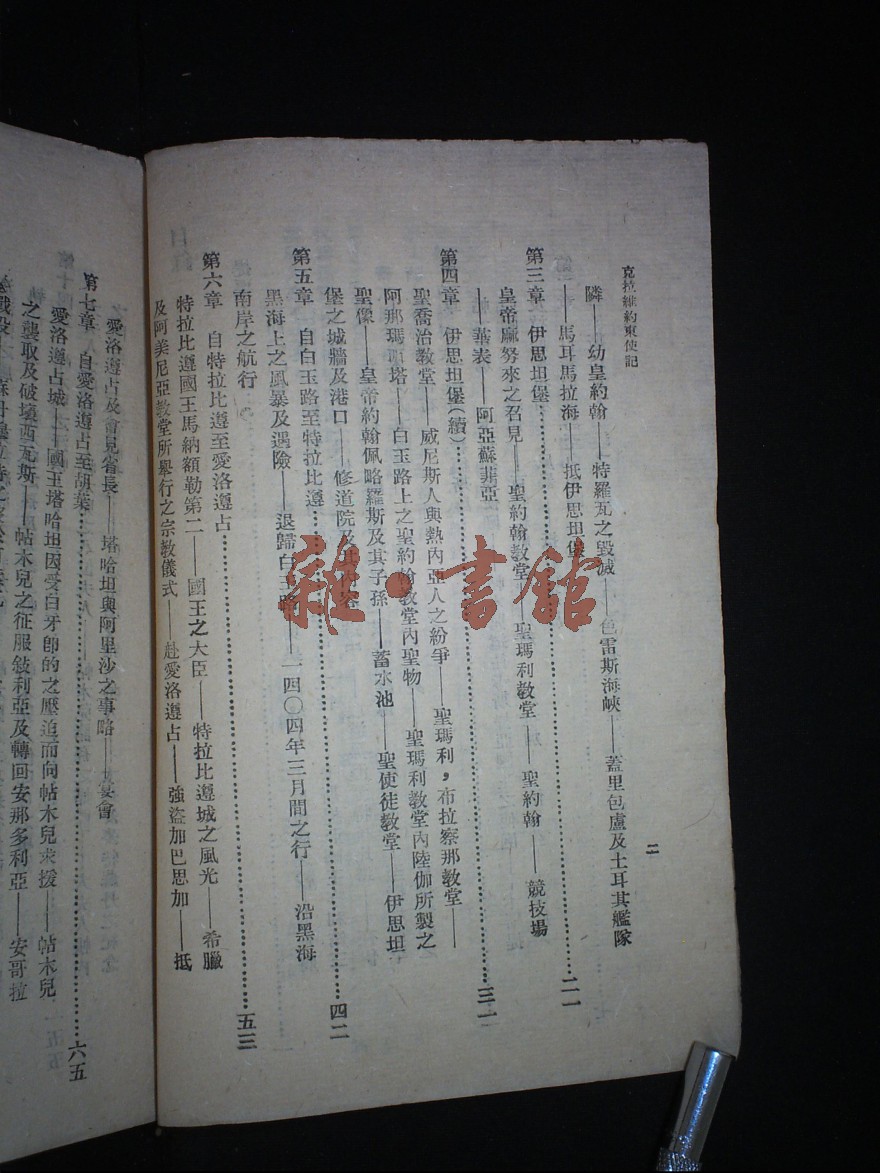 克拉維約東使記
二
隣——幼皇約翰——特羅瓦之毀滅——色雷斯海峽——蓋里包盧及土耳其艦隊
——馬耳馬拉海——抵伊思坦堡
第三章 伊思坦堡……二一
皇帝麻努來之召見——聖約翰教堂——聖瑪利教堂——聖約翰——競技場
——華表——阿亞蘇菲亞
第四章 伊思坦堡(續)……三一
聖喬治教堂——威尼斯人與熱內亞人之紛爭——聖瑪利，布拉察那教堂——
阿那瑪塔——白玉路上之聖約翰教堂內聖物——聖瑪利教堂內陸伽所製之
聖像——皇帝約翰佩略羅斯及其子孫——蓄水池——聖使徒教堂——伊思坦
堡之城牆及港口——修道院及
第五章 自白玉路至特拉比遵……四二
黑海上之風暴及遇險——退歸白玉路——一四〇四年三月間之行——沿黑海
南岸之航行
第六章 自特拉比遵至愛洛遵占……五三
特拉比遵國王馬納額勒第二——國王之大臣——特拉比遵城之風光——希臘
及阿美尼亞教堂所舉行之宗教儀式——赴愛洛遵占——強盜加巴思加——抵
愛洛遵占及會見省長——塔哈坦與阿里沙之事略——宴會
第七章 自愛洛遵占至胡葉……六五
愛洛遵占城——國王塔哈坦因受白牙郎的之壓迫而向帖木兒求援——帖木兒
之襲取及破壞西瓦斯——帖木兒之征服敍利亞及轉回安那多利亞——安哥拉
雜·書館